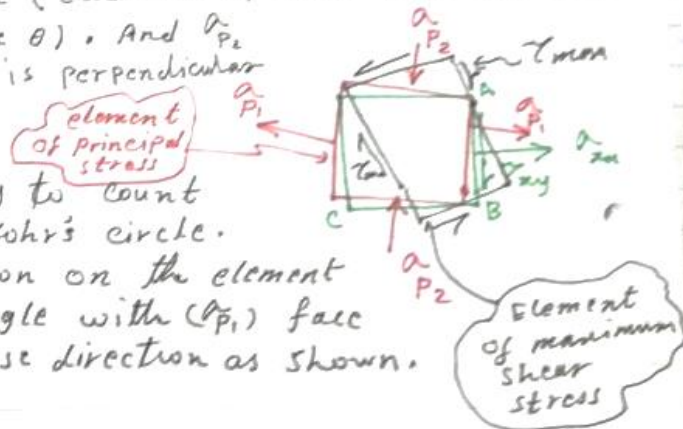 e θ). And σ_P2
is perpendicular
element
of principal
stress
to count
ohr's circle.
on on the element
gle with (σ_P1) face
se direction as shown.
σ_P2
τ_max
σ_P1
σ_P1
A
σ_xx
τ_xy
C
B
σ_P2
Element
of maximum
shear
stress